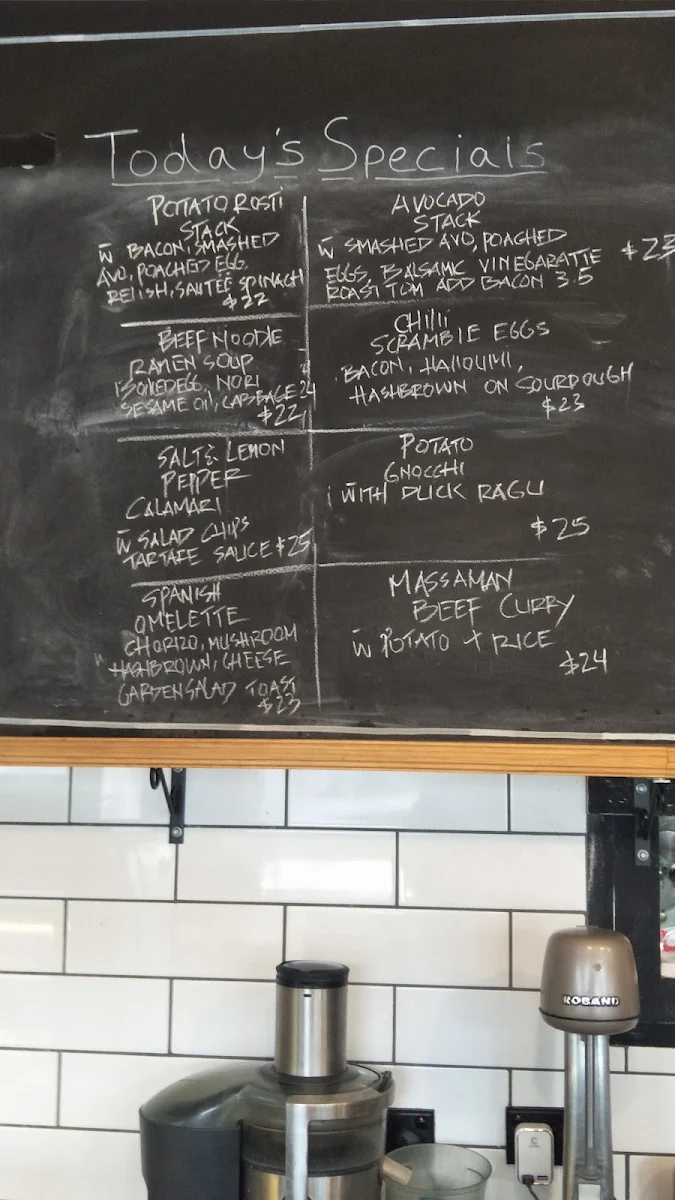 Today's Specials
POTATO ROSTI
STACK
W BACON SMASHED
AVO, POACHED EGG,
RELISH, SAUTEE SPINACH
$22
AVOCADO
STACK
W SMASHED AVO, POACHED
EGGS, BALSAMIC VINEGARATTE $23
ROAST TOM ADD BACON 3.5
BEEF NOODLE
RAMEN SOUP
BOILED EGG, NORI
SESAME OIL, CABBAGE
$22
CHILLI
SCRAMBLE EGGS
BACON, HALLOUMI,
HASHBROWN ON SOURDOUGH
$23
SALT & LEMON
PEPPER
CALAMARI
W SALAD CHIPS
TARTARE SAUCE $25
POTATO
GNOCCHI
WITH DUCK RAGU
$25
SPANISH
OMELETTE
CHORIZO, MUSHROOM
HASHBROWN, CHEESE
GARDEN SALAD TOAST
$23
MASSAMAN
BEEF CURRY
W POTATO + RICE
$24
ROBAND